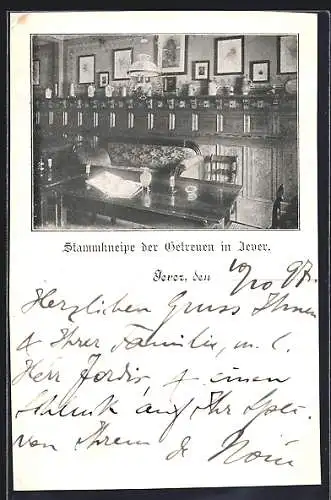 Stammkneipe der Getreuen in Jever.
Jever, den 10/10 97.
Herzlichen Gruss Ihnen
& Ihrer Familie, m. l.
Herr Jordis, & einen
auf Ihr
von Ihrem